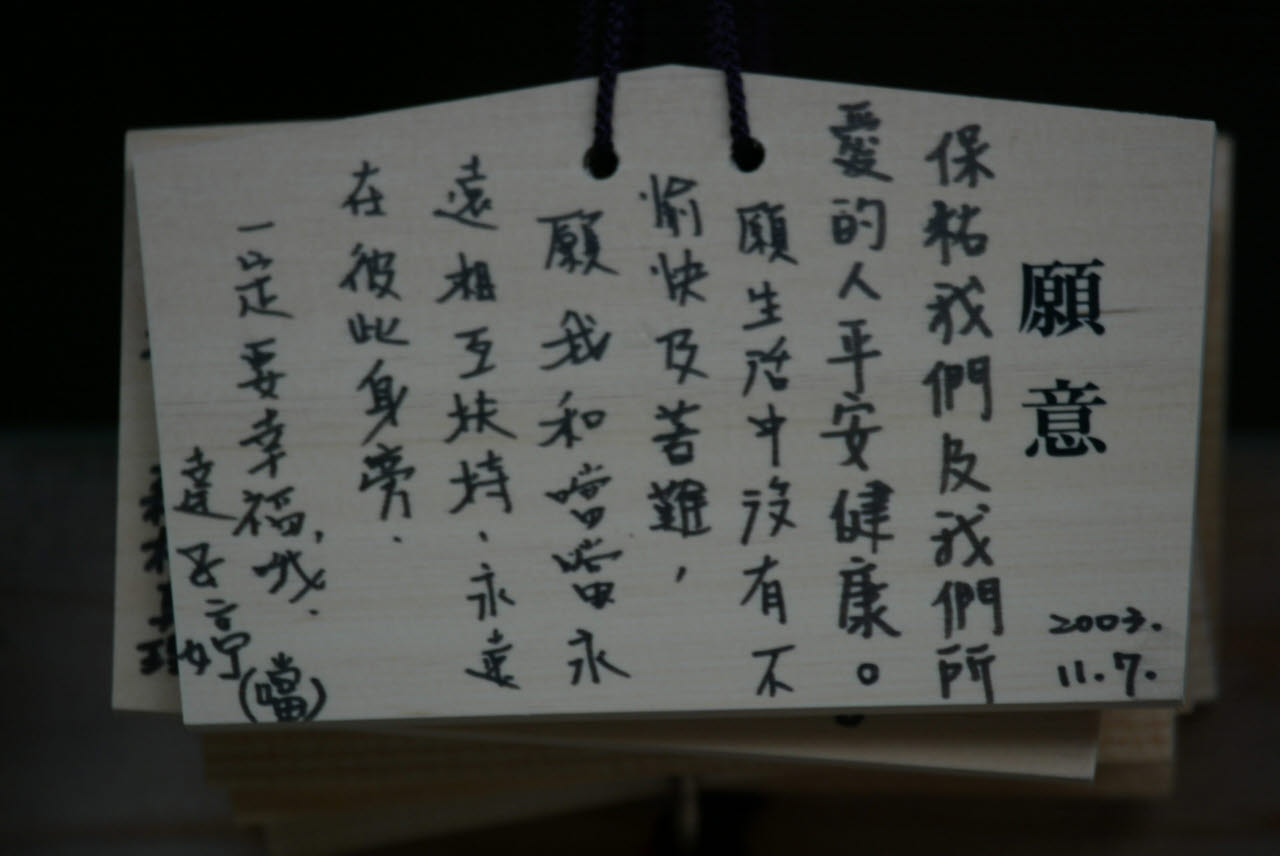 願意
2003.
11.7.
保祐我們及我們所
愛的人平安健康。
願生活中沒有不
愉快及苦難，
願我和噹噹永
遠相互扶持、永遠
在彼此身旁．
一定要幸福，哦．
(噹)